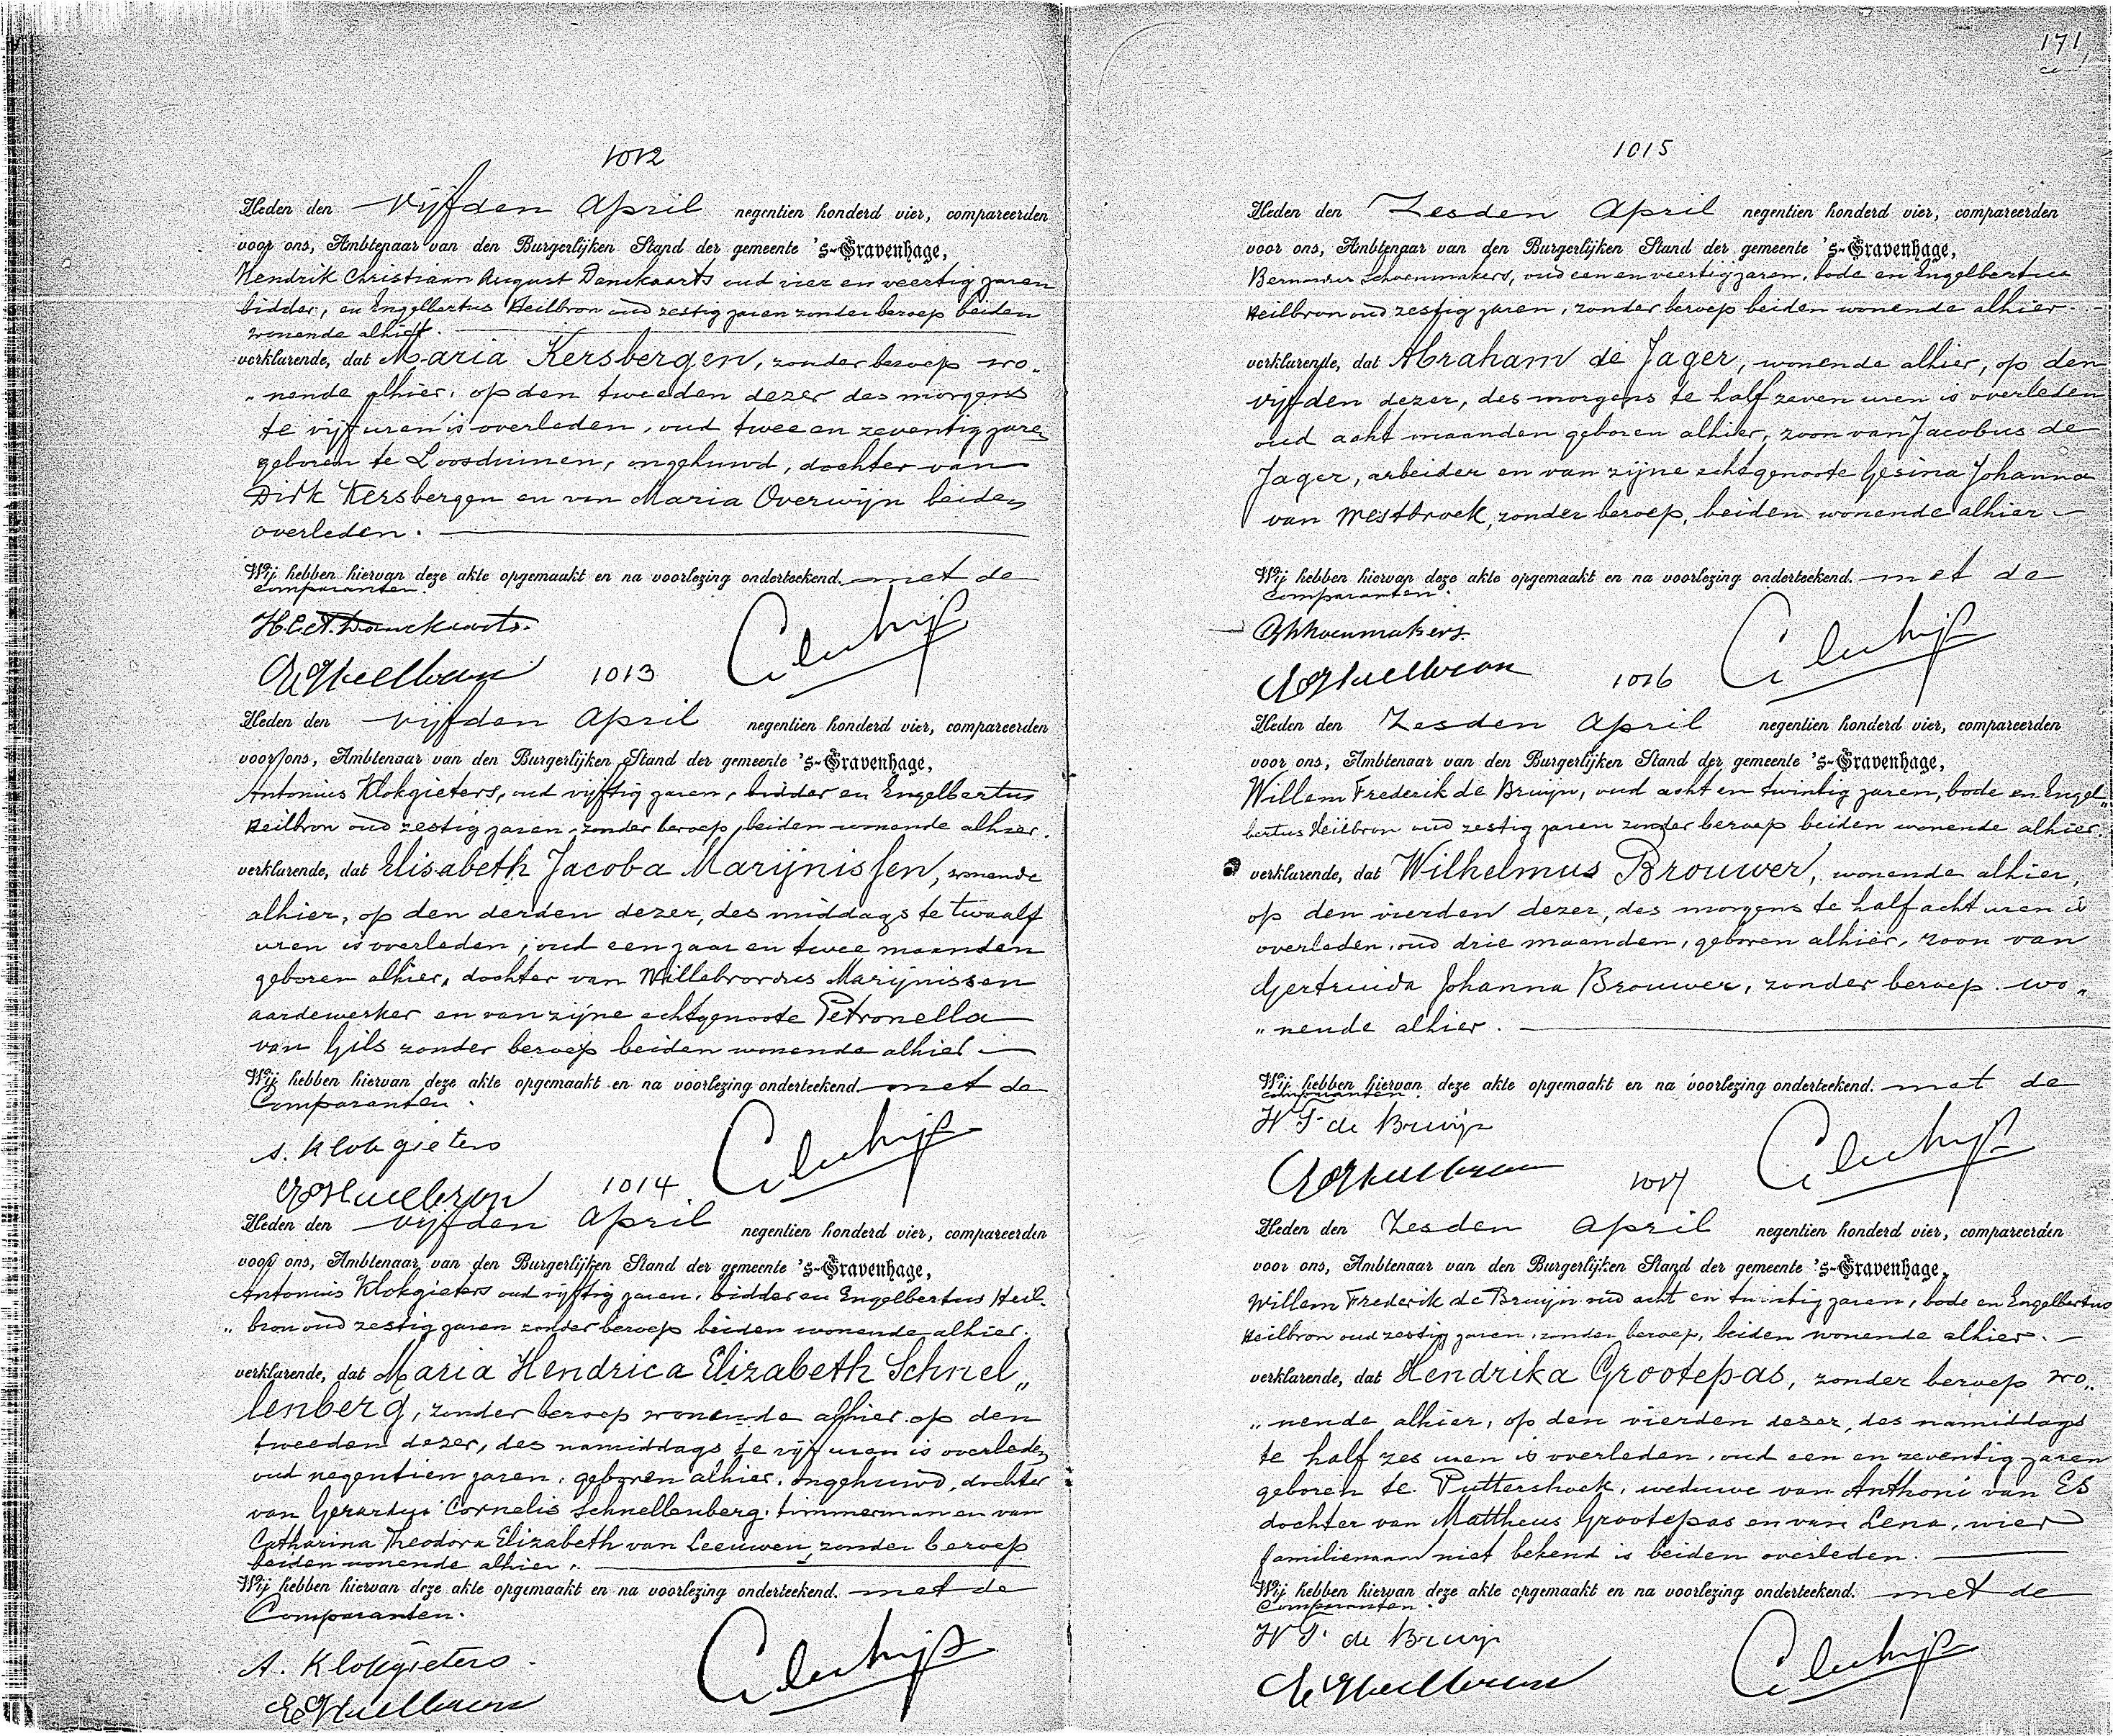 1012
Heden den Vijfden April negentien honderd vier, compareerden
voor ons, Ambtenaar van den Burgerlijken Stand der gemeente 's-Gravenhage,
Hendrik Christiaan August Danckaarts oud vier en veertig jaren
bidder, en Engelbertus Heilbron oud zestig jaren zonder beroep beiden
wonende alhier.
verklarende, dat Maria Kersbergen, zonder beroep wo„
„nende alhier, op den tweeden dezer des morgens
te vijf uren is overleden, oud twee en zeventig jaren
geboren te Loosduinen, ongehuwd, dochter van
Dirk Kersbergen en van Maria Overwijn beiden
overleden.
Wij hebben hiervan deze akte opgemaakt en na voorlezing onderteekend. met de
comparanten.
H.C.A. Danckaarts.
E Heilbron
1013
Heden den vijfden April negentien honderd vier, compareerden
voor ons, Ambtenaar van den Burgerlijken Stand der gemeente 's-Gravenhage,
Antonius Klokgieters, oud vijftig jaren, bidder en Engelbertus
Heilbron oud zestig jaren zonder beroep, beiden wonende alhier.
verklarende, dat Elisabeth Jacoba Marijnissen, wonende
alhier, op den derden dezer, des middags te twaalf
uren is overleden, oud een jaar en twee maanden
geboren alhier, dochter van Willebrordus Marijnissen
aardewerker en van zijne echtgenoote Petronella
van Gils zonder beroep beiden wonende alhier
Wij hebben hiervan deze akte opgemaakt en na voorlezing onderteekend met de
Comparanten.
A. Klokgieters
E Heilbron
1014
Heden den vijfden April negentien honderd vier, compareerden
voor ons, Ambtenaar van den Burgerlijken Stand der gemeente 's-Gravenhage,
Antonius Klokgieters oud vijftig jaren, bidder en Engelbertus Heil„
„bron oud zestig jaren zonder beroep beiden wonende alhier.
verklarende, dat Maria Hendrica Elizabeth Schnel„
lenberg, zonder beroep wonende alhier op den
tweeden dezer, des namiddags te vijf uren is overleden
oud negentien jaren, geboren alhier, ongehuwd, dochter
van Gerardus Cornelis Schnellenberg, timmerman en van
Catharina Theodora Elizabeth van Leeuwen, zonder beroep
beiden wonende alhier.
Wij hebben hiervan deze akte opgemaakt en na voorlezing onderteekend. met de
Comparanten.
A. Klokgieters.
E Heilbron
171
1015
Heden den Zesden April negentien honderd vier, compareerden
voor ons, Ambtenaar van den Burgerlijken Stand der gemeente 's-Gravenhage,
Bernardus Schoenmakers, oud een en veertig jaren, bode en Engelbertus
Heilbron oud zestig jaren, zonder beroep beiden wonende alhier.
verklarende, dat Abraham de Jager, wonende alhier, op den
vijfden dezer, des morgens te half zeven uren is overleden
oud acht maanden geboren alhier, zoon van Jacobus de
Jager, arbeider en van zijne echtgenoote Gesina Johanna
van Westbroek, zonder beroep, beiden wonende alhier
Wij hebben hiervan deze akte opgemaakt en na voorlezing onderteekend. met de
comparanten.
BSchoenmakers.
E Heilbron
1016
Heden den Zesden April negentien honderd vier, compareerden
voor ons, Ambtenaar van den Burgerlijken Stand der gemeente 's-Gravenhage,
Willem Frederik de Bruijn, oud acht en twintig jaren, bode en Engel„
bertus Heilbron oud zestig jaren zonder beroep beiden wonende alhier.
verklarende, dat Wilhelmus Brouwer, wonende alhier,
op den vierden dezer, des morgens te half acht uren is
overleden, oud drie maanden, geboren alhier, zoon van
Gertruida Johanna Brouwer, zonder beroep. wo„
„nende alhier.
Wij hebben hiervan deze akte opgemaakt en na voorlezing onderteekend. met de
comparanten.
W F de Bruijn
E Heilbron
1017
Heden den Zesden April negentien honderd vier, compareerden
voor ons, Ambtenaar van den Burgerlijken Stand der gemeente 's-Gravenhage,
Willem Frederik de Bruijn oud acht en twintig jaren, bode en Engelbertus
Heilbron oud zestig jaren, zonder beroep, beiden wonende alhier.
verklarende, dat Hendrika Grootepas, zonder beroep wo„
„nende alhier, op den vierden dezer, des namiddags
te half zes uren is overleden, oud een en zeventig jaren
geboren te Puttershoek, weduwe van Anthoni van Es
dochter van Mattheus Grootepas en van Lena, wier
familienaam niet bekend is beiden overleden.
Wij hebben hiervan deze akte opgemaakt en na voorlezing onderteekend. met de
Comparanten.
W F. de Bruijn
E Heilbron